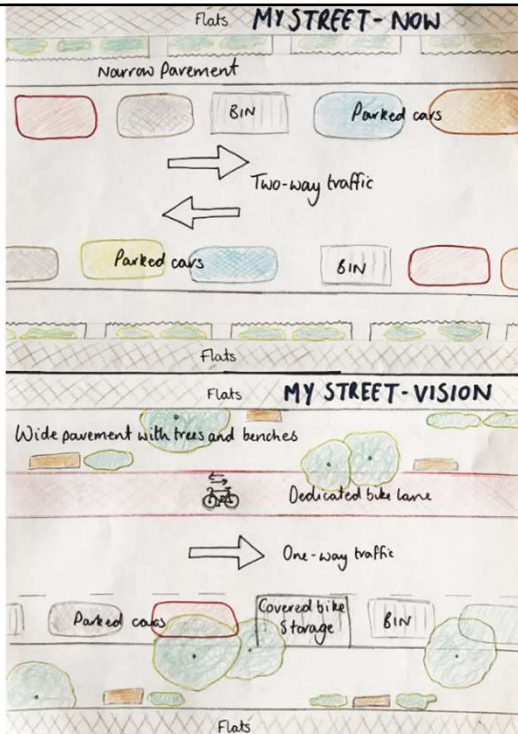 Flats
MY STREET-NOW
Narrow Pavement
BIN
Parked cars
Two-way traffic
Parked cars
BIN
Flats
Flats
MY STREET-VISION
Wide pavement with trees and benches
Dedicated bike lane
One-way traffic
Parked cars
Covered bike
Storage
BIN
Flats